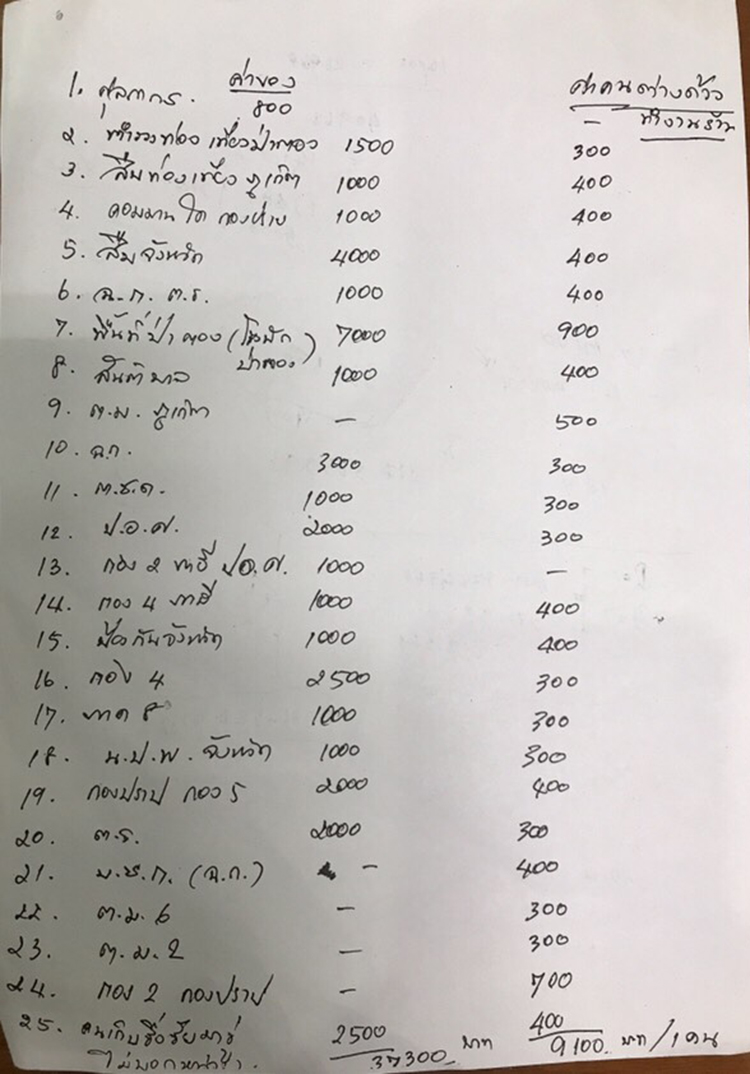 ค่าของ ค่าคนต่างด้าว
ทำงานร้าน
1. ศุลกากร. 800 —
2. ตำรวจท่องเที่ยวป่าตอง 1500 300
3. สืบท่องเที่ยวภูเก็ต 1000 400
4. คอมมานโด 1000 400
5. สืบจังหวัด 4000 400
6. ฉ.ก. ต.ร. 1000 400
7. พื้นที่ป่าตอง (โรงพัก ป่าตอง) 7000 900
8. สันติบาล 1000 400
9. ต.ม. ภูเก็ต — 500
10. ฉ.ก. 3000 300
11. ต.ช.ด. 1000 300
12. ป.อ.ศ. 2000 300
13. กอง 2 ป.อ.ศ. 1000 —
14. กอง 4 1000 400
15. ป้องกันจังหวัด 1000 400
16. กอง 4 2500 300
17. ภาค 8 1000 300
18. น.ป.พ. จังหวัด 1000 300
19. กองปราบ กอง 5 2000 400
20. ต.ร. 2000 300
21. บ.ช.ก. (ฉ.ก.) — 400
22. ต.ม. 6 — 300
23. ต.ม. 2 — 300
24. กอง 2 กองปราบ — 700
25. คนเก็บชื่อ 2500 400
ไม่บอก 37300 บาท 9100 บาท / 1 คน